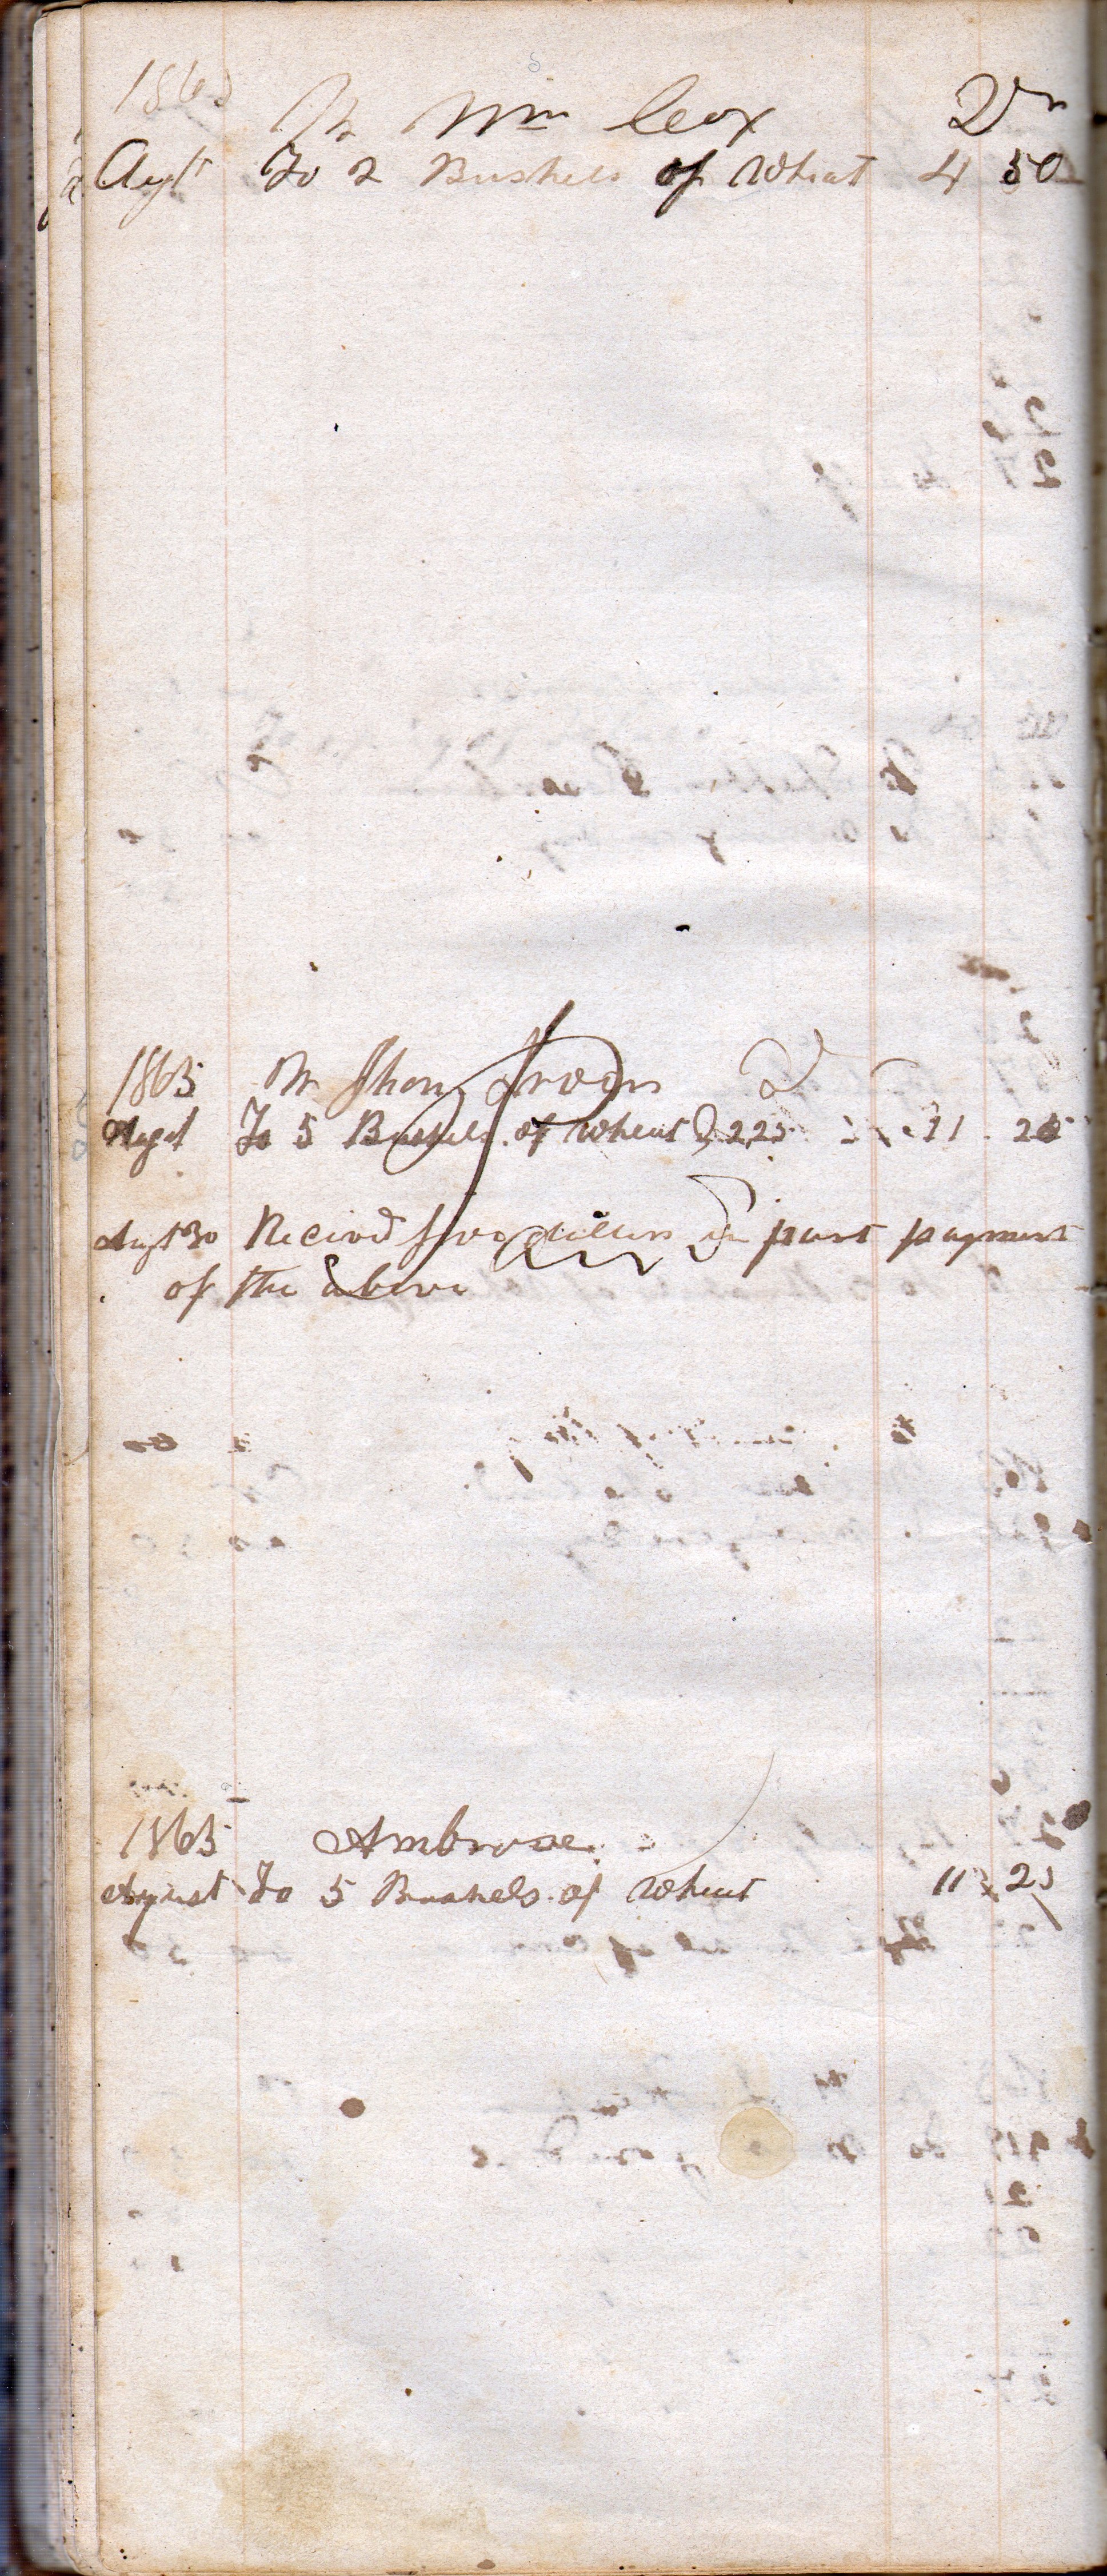 186
Mr Wm Cox Dr
Augt To 2 Bushels of Wheat 4 50
1865 Mr Jhon D
Augst To 5 Bushels of wheat 225 11 25
Augt 30 Recievd five dollers in part payment
of the above
1865 Ambrose
August To 5 Bushels of wheat 11 25